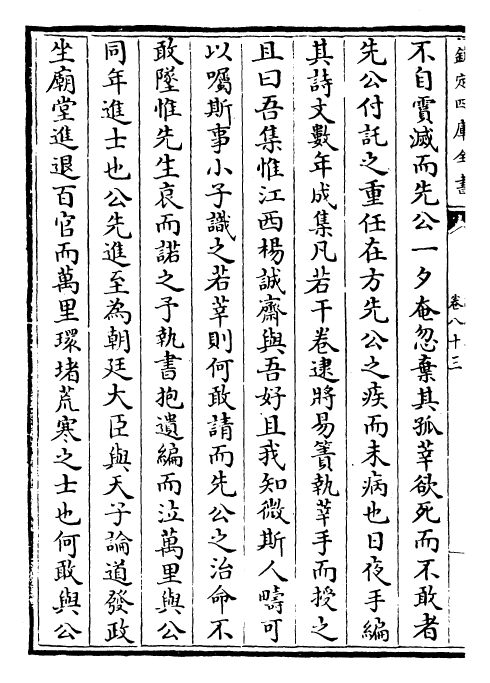 欽定四庫全書
卷八十三
不自霣滅而先公一夕奄忽棄其孤莘欲死而不敢者
先公付託之重任在方先公之疾而未病也日夜手編
其詩文數年成集凡若干卷逮將易簀執莘手而授之
且曰吾集惟江西楊誠齋與吾好且我知微斯人疇可
以囑斯事小子識之若莘則何敢請而先公之治命不
敢墜惟先生哀而諾之予執書抱遺編而泣萬里與公
同年進士也公先進至為朝廷大臣與天子論道發政
坐廟堂進退百官而萬里環堵荒寒之士也何敢與公